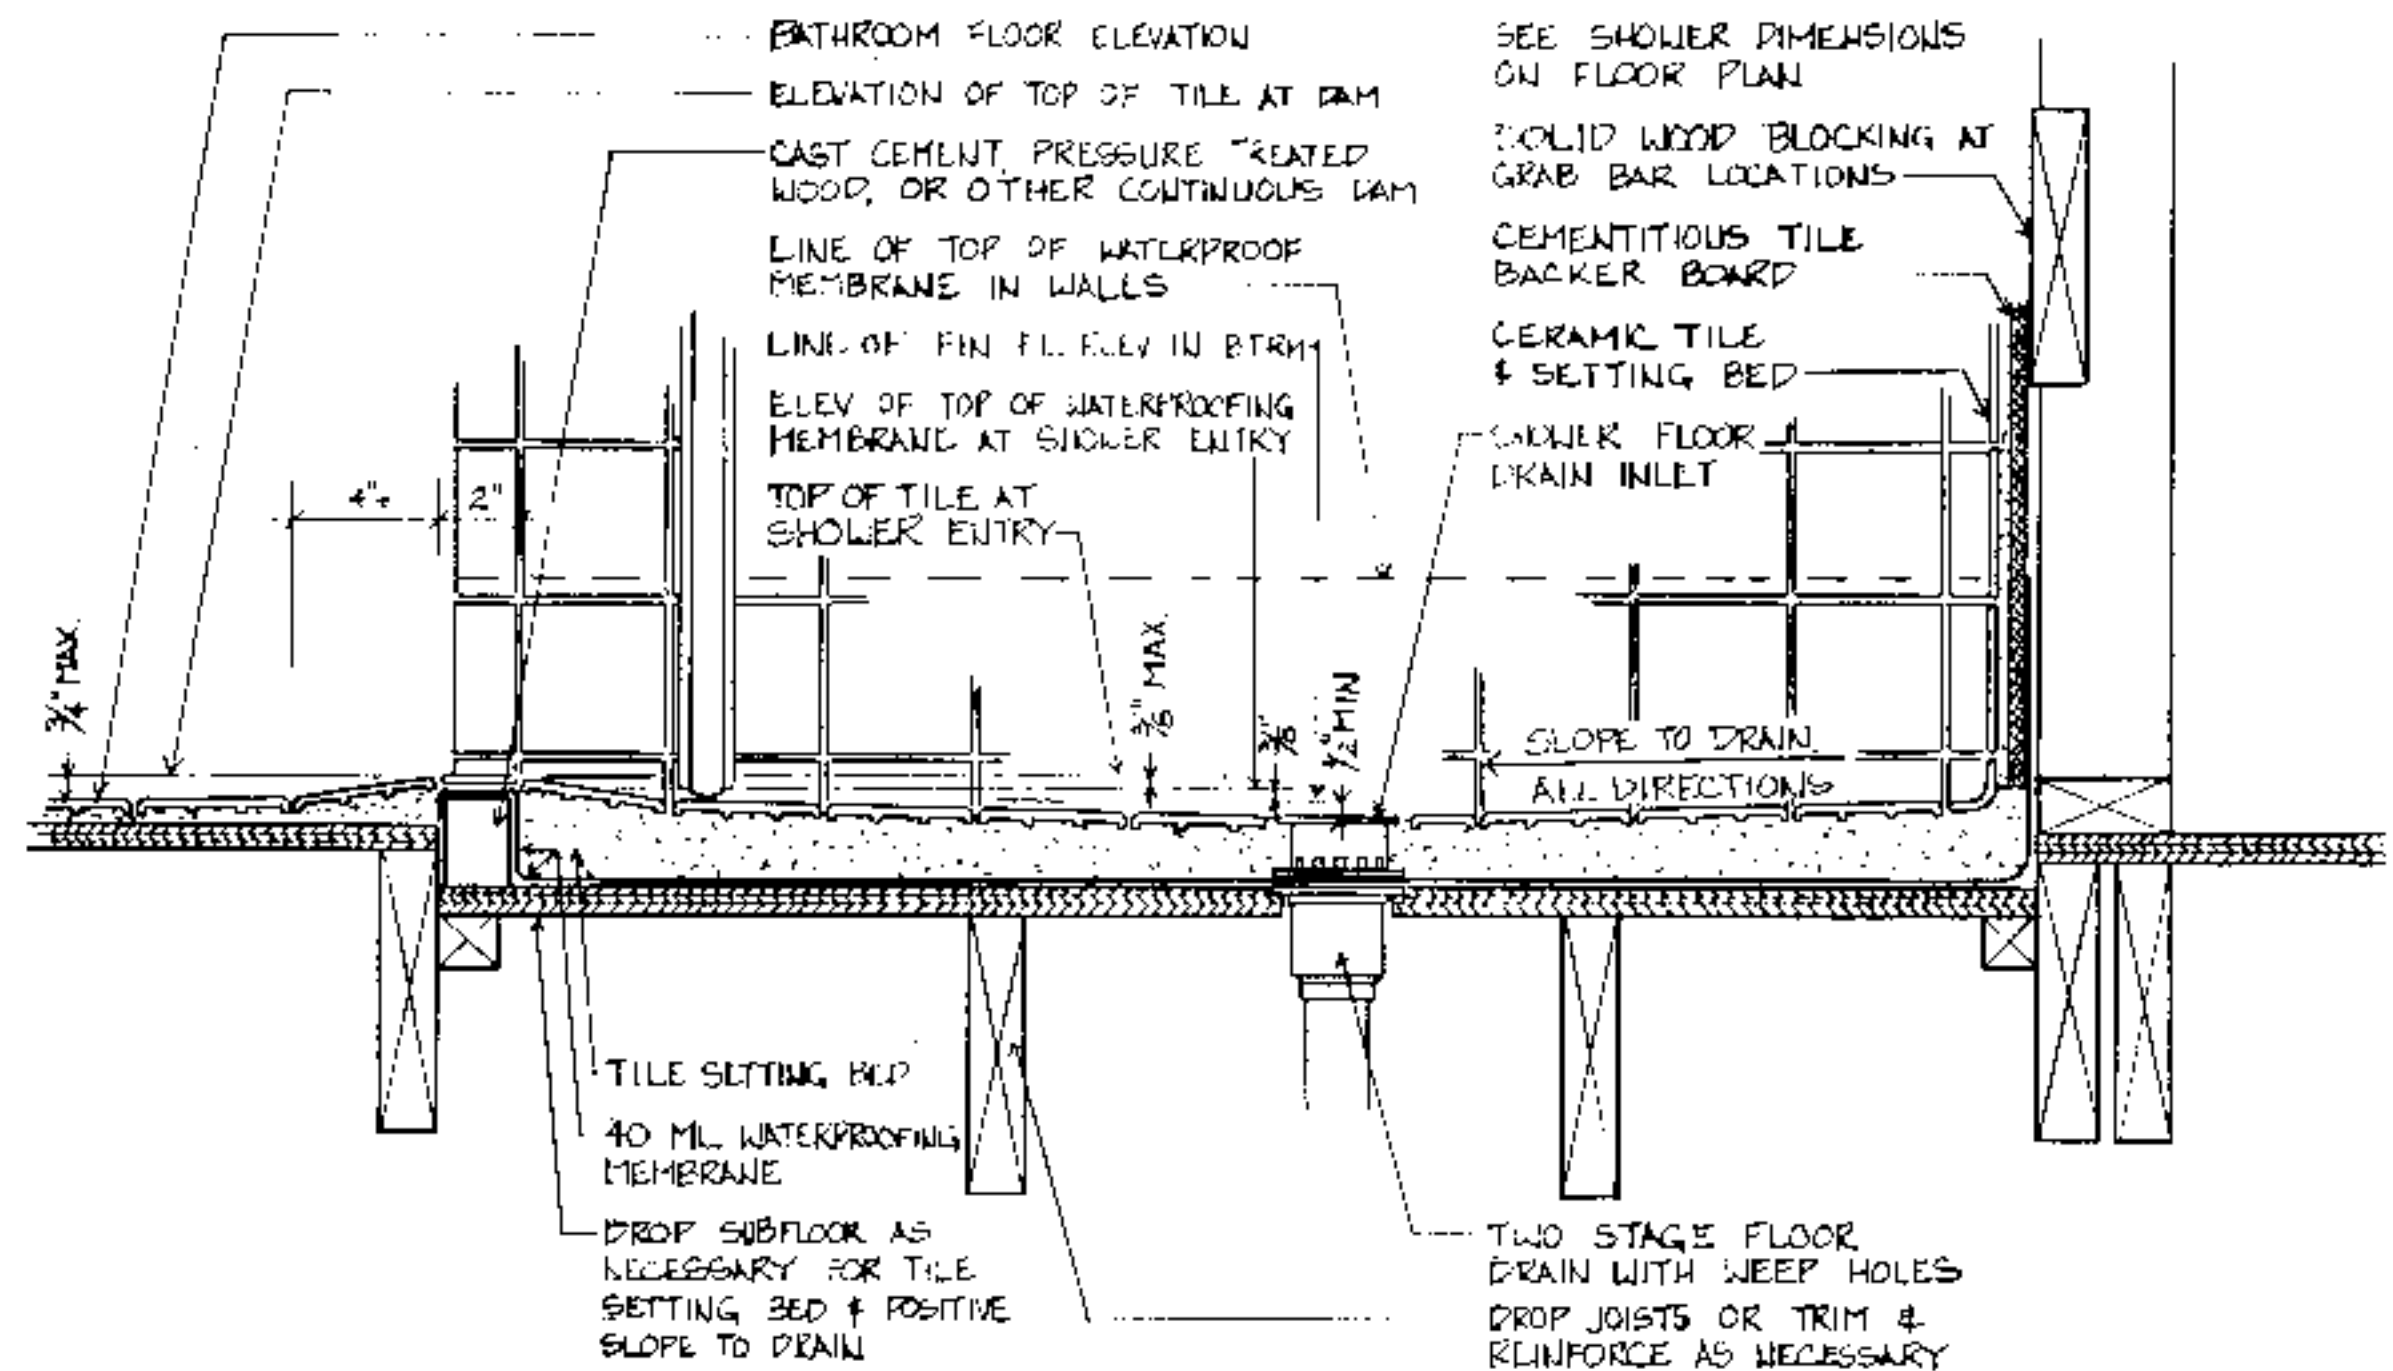 BATHROOM FLOOR ELEVATION
ELEVATION OF TOP OF TILE AT DAM
CAST CEMENT, PRESSURE TREATED
WOOD, OR OTHER CONTINUOUS DAM
LINE OF TOP OF WATERPROOF
MEMBRANE IN WALLS
LINE OF FIN FL ELEV IN BTRM
ELEV OF TOP OF WATERPROOFING
MEMBRANE AT SHOWER ENTRY
TOP OF TILE AT
SHOWER ENTRY
SEE SHOWER DIMENSIONS
ON FLOOR PLAN
SOLID WOOD BLOCKING AT
GRAB BAR LOCATIONS
CEMENTITIOUS TILE
BACKER BOARD
CERAMIC TILE
& SETTING BED
SHOWER FLOOR
DRAIN INLET
4"±
2"
3/4" MAX.
MAX.
1/2" MIN
SLOPE TO DRAIN
ALL DIRECTIONS
TILE SETTING BED
40 MIL WATERPROOFING
MEMBRANE
DROP SUBFLOOR AS
NECESSARY FOR TILE
SETTING BED & POSITIVE
SLOPE TO DRAIN
TWO STAGE FLOOR
DRAIN WITH WEEP HOLES
DROP JOISTS OR TRIM &
REINFORCE AS NECESSARY